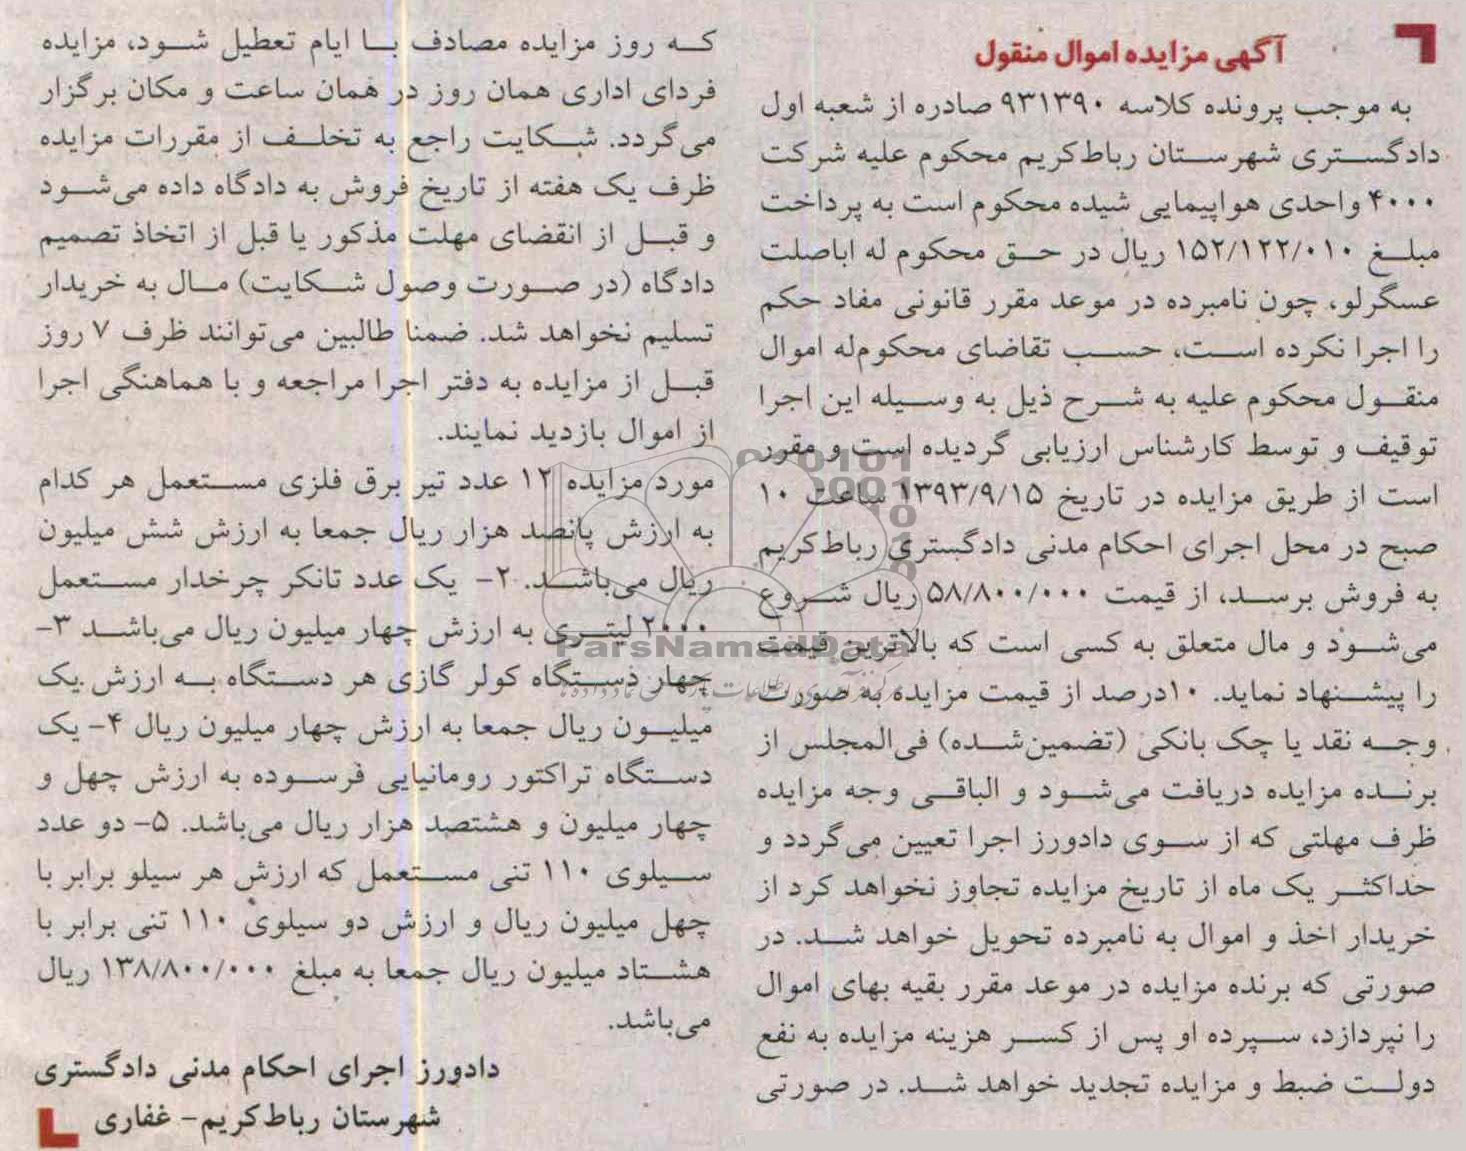 آگهی مزایده اموال منقول
به موجب پرونده کلاسه ۹۳۱۳۹۰ صادره از شعبه اول
دادگستری شهرستان رباط‌کریم محکوم علیه شرکت
۴۰۰۰ واحدی هواپیمایی شیده محکوم است به پرداخت
مبلغ ۱۵۲/۱۲۲/۰۱۰ ریال در حق محکوم له اباصلت
عسگرلو، چون نامبرده در موعد مقرر قانونی مفاد حکم
را اجرا نکرده است، حسب تقاضای محکوم‌له اموال
منقول محکوم علیه به شرح ذیل به وسیله این اجرا
توقیف و توسط کارشناس ارزیابی گردیده است و مقرر
است از طریق مزایده در تاریخ ۱۳۹۳/۹/۱۵ ساعت ۱۰
صبح در محل اجرای احکام مدنی دادگستری رباط‌کریم
به فروش برسد، از قیمت ۵۸/۸۰۰/۰۰۰ ریال شروع
می‌شود و مال متعلق به کسی است که بالاترین قیمت
را پیشنهاد نماید. ۱۰درصد از قیمت مزایده به صورت
وجه نقد یا چک بانکی (تضمین‌شده) فی‌المجلس از
برنده مزایده دریافت می‌شود و الباقی وجه مزایده
ظرف مهلتی که از سوی دادورز اجرا تعیین می‌گردد و
حداکثر یک ماه از تاریخ مزایده تجاوز نخواهد کرد از
خریدار اخذ و اموال به نامبرده تحویل خواهد شد. در
صورتی که برنده مزایده در موعد مقرر بقیه بهای اموال
را نپردازد، سپرده او پس از کسر هزینه مزایده به نفع
دولت ضبط و مزایده تجدید خواهد شد. در صورتی
که روز مزایده مصادف با ایام تعطیل شود، مزایده
فردای اداری همان روز در همان ساعت و مکان برگزار
می‌گردد. شکایت راجع به تخلف از مقررات مزایده
ظرف یک هفته از تاریخ فروش به دادگاه داده می‌شود
و قبل از انقضای مهلت مذکور یا قبل از اتخاذ تصمیم
دادگاه (در صورت وصول شکایت) مال به خریدار
تسلیم نخواهد شد. ضمنا طالبین می‌توانند ظرف ۷ روز
قبل از مزایده به دفتر اجرا مراجعه و با هماهنگی اجرا
از اموال بازدید نمایند.
مورد مزایده ۱۲ عدد تیر برق فلزی مستعمل هر کدام
به ارزش پانصد هزار ریال جمعا به ارزش شش میلیون
ریال می‌باشد. ۲- یک عدد تانکر چرخدار مستعمل
۲۰۰۰ لیتری به ارزش چهار میلیون ریال می‌باشد ۳-
چهار دستگاه کولر گازی هر دستگاه به ارزش یک
میلیون ریال جمعا به ارزش چهار میلیون ریال ۴- یک
دستگاه تراکتور رومانیایی فرسوده به ارزش چهل و
چهار میلیون و هشتصد هزار ریال می‌باشد. ۵- دو عدد
سیلوی ۱۱۰ تنی مستعمل که ارزش هر سیلو برابر با
چهل میلیون ریال و ارزش دو سیلوی ۱۱۰ تنی برابر با
هشتاد میلیون ریال جمعا به مبلغ ۱۳۸/۸۰۰/۰۰۰ ریال
می‌باشد.
دادورز اجرای احکام مدنی دادگستری
شهرستان رباط‌کریم- غفاری
ParsNamadData